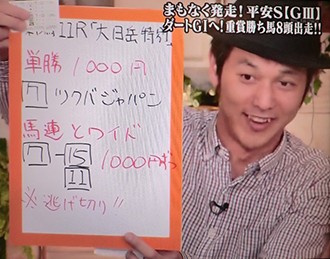 11R「大日岳特別」
まもなく発走!平安S【GⅢ】
ダートG1へ!重賞勝ち馬8頭出走!!
単勝 1000円
7 ツクバジャパン
馬連とワイド
7-15 1000円ずつ
11
※逃げ切り!!